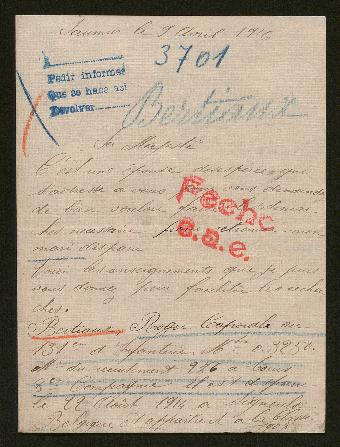 Saumur le 9 Avril 1916
3701
Pedir informes
Que se hace así
Devolver
Bertiaux
Sa Majesté
C'est une épouse désespérée que
s'adresse à vous pour vous demander
de bien vouloir faire
nécessaire pour retrouver mon
mari disparu
Fecho
e.a.e.
Pour les renseignements que je puis
vous donner pour faciliter les recher
ches.
Bertiaux Roger Caporal au
131em d'Infanterie Mle 3252
Mle du recrutement 926 à
Compagnie il est disparu
le 22 Août 1914 à
Belgique et appartient à la